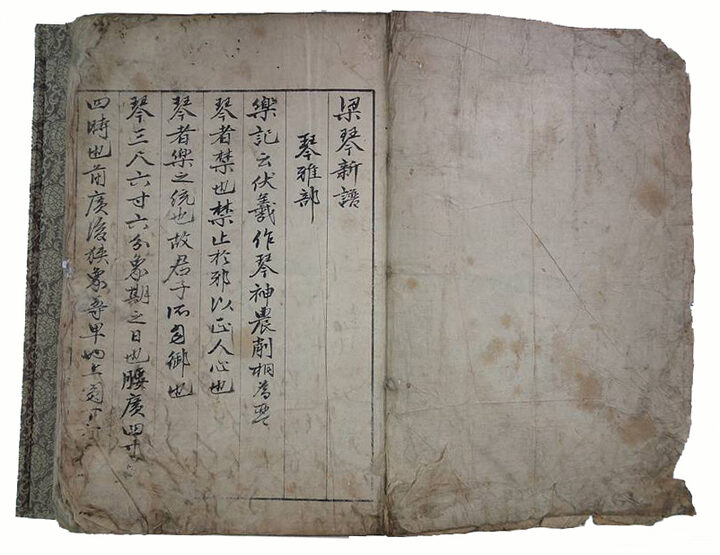 梁琴新譜
琴雅部
樂記云伏羲作琴神農削桐為
琴者禁也禁止於邪以正人心也
琴者樂之統也故君子所自御也
琴三尺六寸六分象期之日也腰廣四寸
四時也前廣後狹象尊卑也上圓下